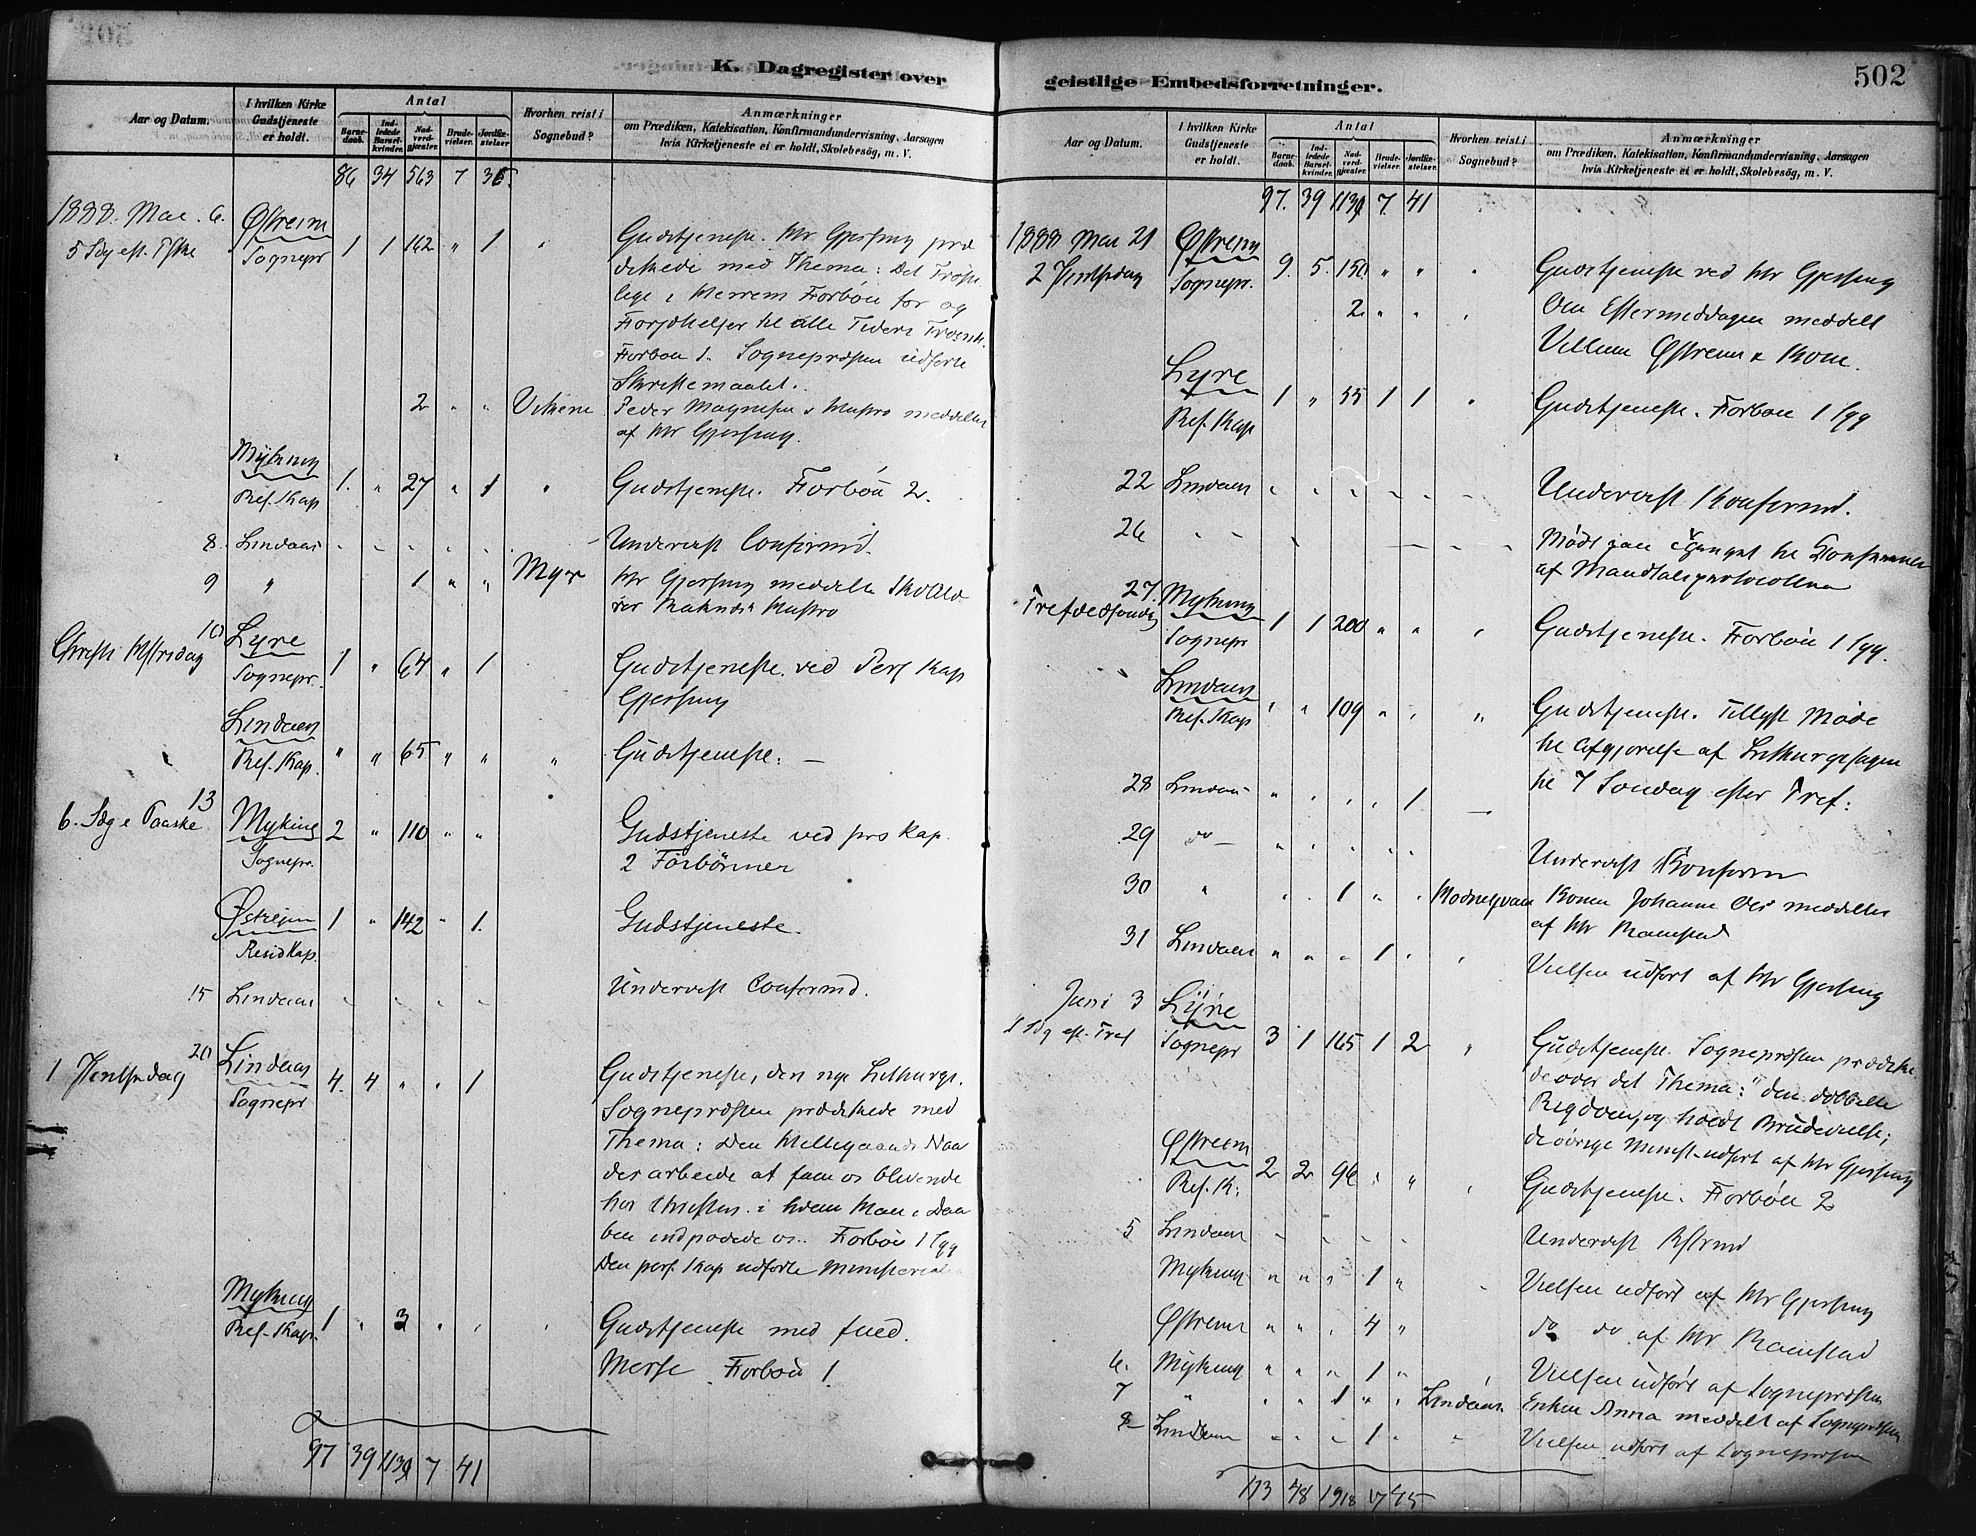 K. Dagregister over
Aar og Datum.
I hvilken Kirke Gudstjeneste er holdt.
Antal
Barne- daab.
Ind- ledede Barsel- kvinder.
Nad- verd- gjæster.
Brude- vielser.
Jordfæ- stelser
Hvorhen reist i Sognebud?
Anmærkninger
om Prædiken, Katekisation, Konfirmandundervisning, Aarsagen
hvis Kirketjeneste ei er holdt, Skolebesøg, m. V.
86 34 563 7 36
1888. Mai. 6. Østreim
5 Sdg eft. Pske Sognepr 1 1 162 " 1 Gudstjeneste. Mr Gjersing præ
dikede med Thema: Det Trøste
lige i Herrens Forbøn for og
til alle Tiders
Forbøn 1. Sognepræsten udførte
Skriftemaalet.
2 " " Vikene Peder Magnesen & Hustro meddelte
af Mr Gjersing.
Myking
Res. Kap 1. " 27 " 1 " Gudstjeneste. Forbøn 2.
8. Lindaas Undervist Confirmd.
9 " 1 " " Myr Mr Gjersing meddelte
Hustro
10 Lyre
Christi Hfrsdag Sognepr. 1 " 64 " 1 Gudstjeneste ved Pers Kap
Gjersing
Lindaas
Res. Kap. " " 65 " " " Gudstjeneste. —
13
6. Sdg e Paaske Myking 2 " 110 " " Gudstjeneste ved prs Kap.
Sognepr. 2 Forbønner
Østreim 1 " 142 " 1. Gudstjeneste.
Resid Kap.
15 Lindaas Undervist Confirmd.
20 Lindaas
1 Pentsedag Sognepr 4. 4 " " 1 Gudstjeneste, den nye Lithurgi.
Sognepræsten prædikede med
Thema: Den Helligaands Naa
des arbeide at faa os blivende
hos Christus i hvem Man i Daa
ben indpodede os. Forbøn 1
Den pers. Kap udførte Ministeriali
Myking
Res. Kap. 1 " 3 " " " Gudstjeneste med fued.
Messe Forbøn 1.
97 39 1139 7 41
geistlige Embedsforretninger.
502
Aar og Datum.
I hvilken Kirke Gudstjeneste er holdt.
Antal
Barne- daab.
Ind- ledede Barsel- kvinder.
Nad- verd- gjæster.
Brude- vielser.
Jordfæ- stelser.
Hvorhen reist i Sognebud?
Anmærkninger
om Prædiken, Katekisation, Konfirmandundervisning, Aarsagen
hvis Kirketjeneste ei er holdt, Skolebesøg, m. V.
97. 39 1139 7. 41
1888 Mai 21 Østreim
2 Pentsedag Sognepr. 9. 5. 150. " " " Gudstjeneste ved Mr Gjersing
2 " " " Om Eftermeddagen meddelt
Villum Østreim & Kone.
Lyre
Res. Kap 1 " 55 1 1 " Gudstjeneste. Forbøn 1
22 Lindaas Undervist Konfirmd.
26 Mødt
af Mandtalsprotocollen
27. Myking
Trefdedsøndg Sognepr 1 1 200 " " " Gudstjeneste. Forbøn 1
Lindaas
Res. Kap " " 109 " " " Gudstjeneste. Tillyst Møde
til Afgjørelse af Lithurgisagen
til 7 Søndag efter Tref:
28 Lindaas " " " " 1 —
29 do — " " " " " Undervist Konfirm
30 " " " 1 " " Konen Johanne meddeltes
af Mr Ramstad
31 Lindaas " " " 1 " " Vielsen udført af Mr Gjersing
Juni 3 Lyre
1 Sdg eft. Tref Sognepr 3 1 165 1 2 " Gudstjeneste. Sognepræsten prædike
de over det Thema: "den dobbelte
Rigdom", og holdt Brudevielse;
de øvrige Minist. udført af Mr Gjersing
Østreim
Res. K: 2 2 96 " " " Gudstjeneste. Forbøn 2
5 Lindaas Undervist
Myking " " " 1 " Vielsen udført af Mr Gjersing
Østreim " " " 4 " do do af Mr Ramstad
6. Myking " " " 1 " Vielsen udført af Sognepræsten
7 " " " 1 " " Lindaas Enken Anna meddelt af Sognepræsten
8 Lindaas " " " 1 " " Vielsen udført af Sognepræsten
113 48 1918 17 45